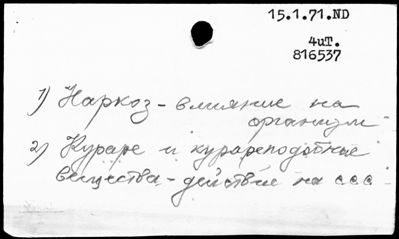 15.1.71.ND
4иT.
816537
1) Наркоз - влияние на
организм
2) Кураре и курареподобные
вещества - действие на с.с.с.